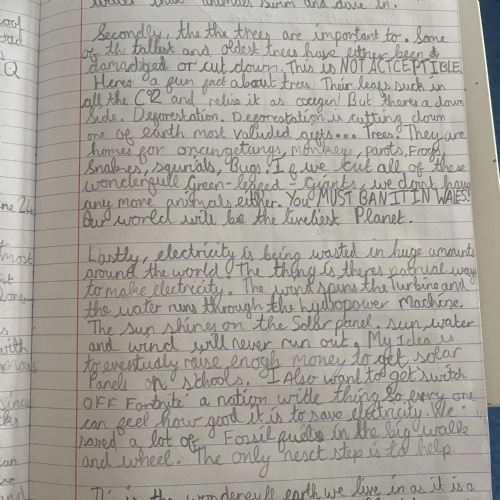 water that animals swim and dive in.
Secondly, the the trees are important to. Some
of the tallest and oldest trees have either been
damadged or cut down. This is NOT ACTCEPTIBLE.
Heres a fun fact about trees. Their leafs suck in
all the CO2 and relise it as oxcigen! But theres a down
side. Deforestation. Deforestation is cutting down
one of earth most valuded gifts... Trees. They are
homes for orangetangs, monkeys, parots, Frogs,
Snakes, squirials, Bugs. If we cut all of these
wonderfull Green-leafed-Giants, we dont have
any more animals either. You MUST BAN IT IN WALES!
Our world will be the liveliest Planet.
Lastly, electricity is being wasted in huge amounts
around the world. The thing is theres natrual way
to make electricity. The wind spins the turbine and
the water runs through the hydropower Machine.
The sun shines on the Solar panel. sun, water
and wind will never run out. My Idea is
to eventually raise enogh money to get solar
Panels on schools. I Also want to get switch
OFF Fortnite a nation wide thing so every one
can feel how good it is to save electricity. We
saved a lot of Fossil fuels in the big walk
and wheel. The only nesct step is to help.
is the wonderfull earth we live in as it is a